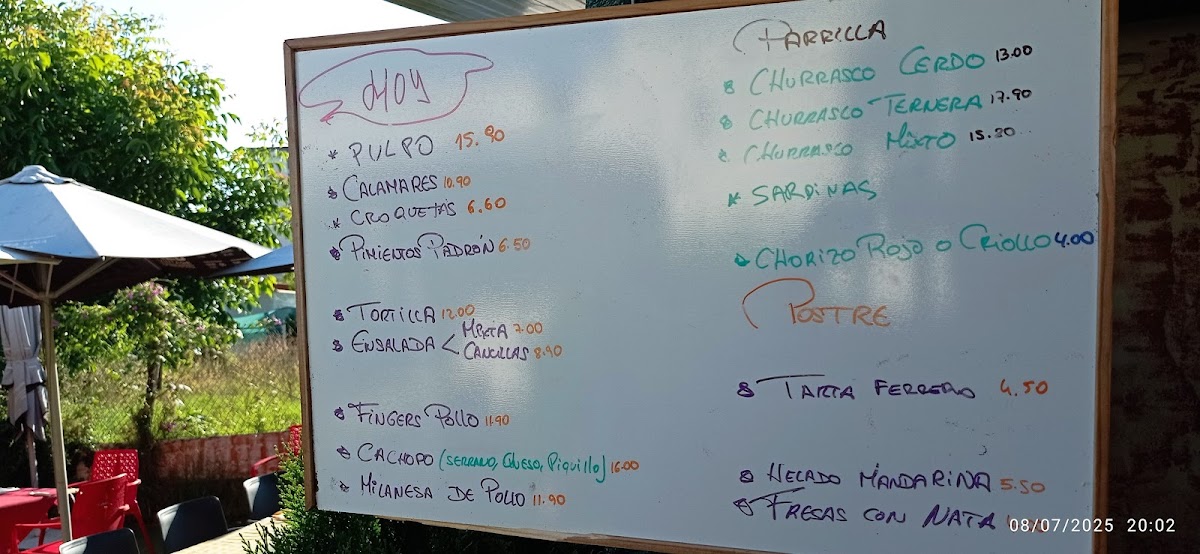 HOY
* PULPO 15.90
* CALAMARES 10.90
* CROQUETAS 6.60
* PIMIENTOS PADRÓN 6.50
* TORTILLA 12.00
* ENSALADA < MIXTA 7.00
CANCILLAS 8.90
* FINGERS POLLO 11.90
* CACHOPO (SERRANO, QUESO, PIQUILLO) 16.00
* MILANESA DE POLLO 11.90
PARRILLA
* CHURRASCO CERDO 13.00
* CHURRASCO TERNERA 17.90
* CHURRASCO MIXTO 15.90
* SARDINAS
* CHORIZO ROJO O CRIOLLO 4.00
POSTRE
* TARTA FERRERO 4.50
* HELADO MANDARINA 5.50
* FRESAS CON NATA
08/07/2025 20:02